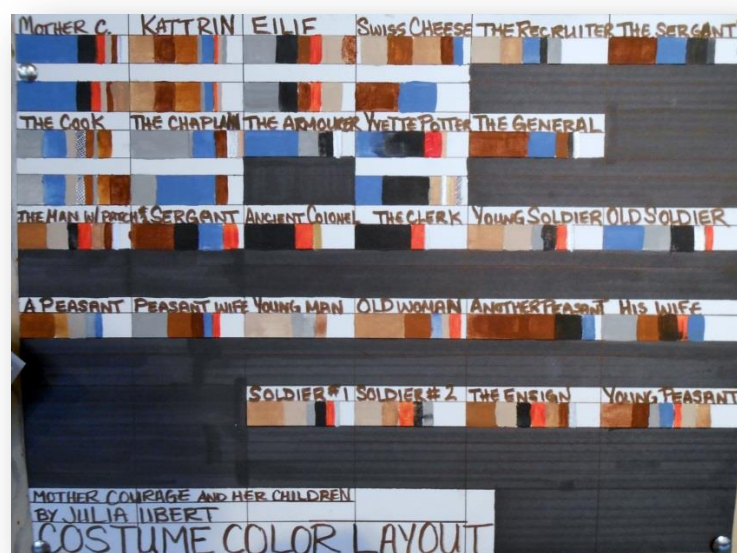 MOTHER C. KATTRIN EILIF SWISS CHEESE THE RECRUITER THE SERGANT
THE COOK THE CHAPLAIN THE ARMOURER YVETTE POTTER THE GENERAL
THE MAN W/ PATCH SERGANT ANCIENT COLONEL THE CLERK YOUNG SOLDIER OLD SOLDIER
A PEASANT PEASANT WIFE YOUNG MAN OLD WOMAN ANOTHER PEASANT HIS WIFE
SOLDIER #1 SOLDIER #2 THE ENSIGN YOUNG PEASANT
MOTHER COURAGE AND HER CHILDREN
BY JULIA
COSTUME COLOR LAYOUT